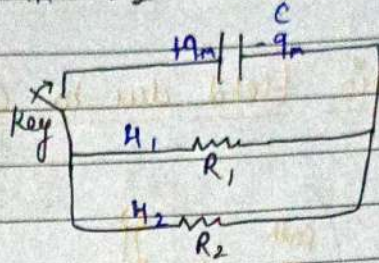 C
+qm -qm
Key
H1
R1
H2
R2